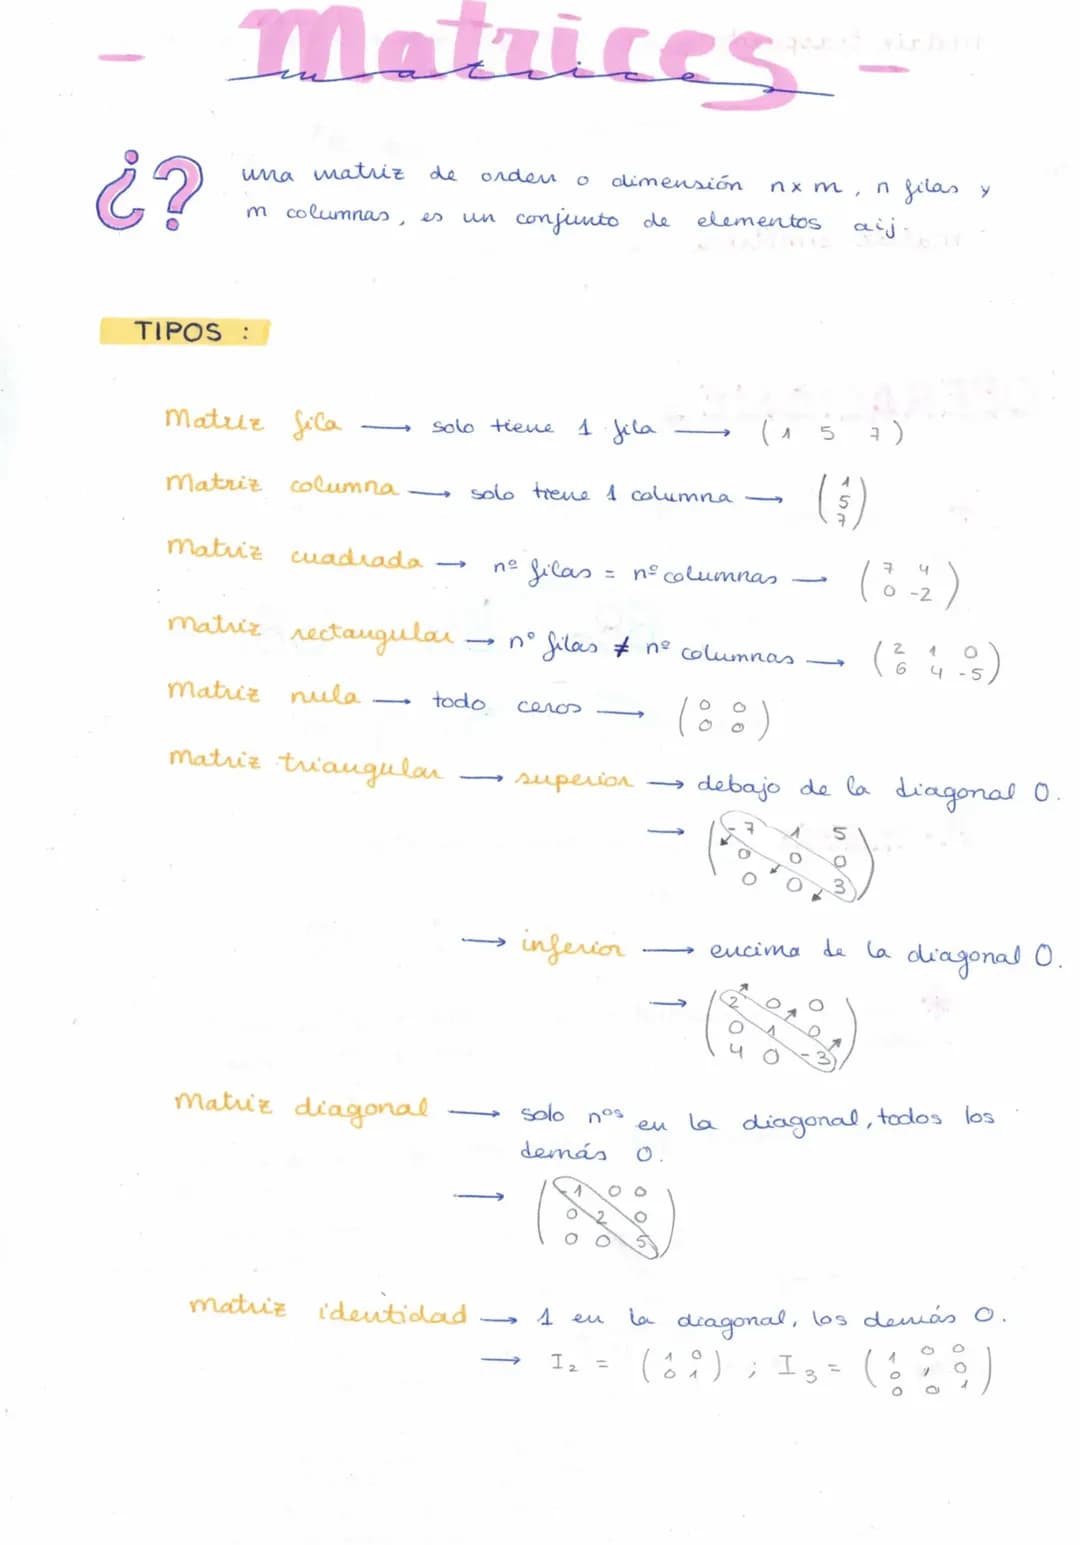 - Matrices -
matrices
¿? una matriz de orden o dimensión n x m, n filas y
m columnas, es un conjunto de elementos aij.
TIPOS :
Matriz fila → solo tiene 1 fila → (1 5 7)
Matriz columna → solo tiene 1 columna → (1
5
7)
Matriz cuadrada → nº filas = nº columnas → (7 4
0 -2)
Matriz rectangular → nº filas ≠ nº columnas → (2 1 0
6 4 -5)
Matriz nula → todo ceros → (0 0
0 0)
Matriz triangular → superior → debajo de la diagonal 0.
→ (-7 1 5
0 0 0
0 0 3)
→ inferior → encima de la diagonal 0.
→ (2 0 0
0 1 0
4 0 -3)
Matriz diagonal → solo nos en la diagonal, todos los
demás 0.
→ (-1 0 0
0 2 0
0 0 5)
Matriz identidad → 1 en la diagonal, los demás 0.
→ I2 = (1 0
0 1) ; I3 = (1 0 0
0 1 0
0 0 1)